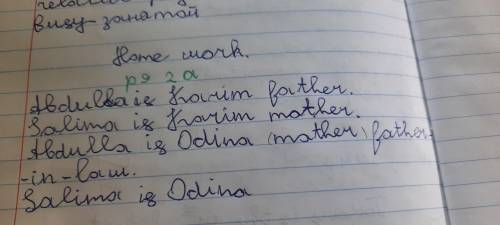 Busy-занатой
Home work.
ря 2 а
Abdulla is Karim father.
Salima is Karim mother.
Abdulla is Odina (mather) father-
-in-law.
Salima is Odina